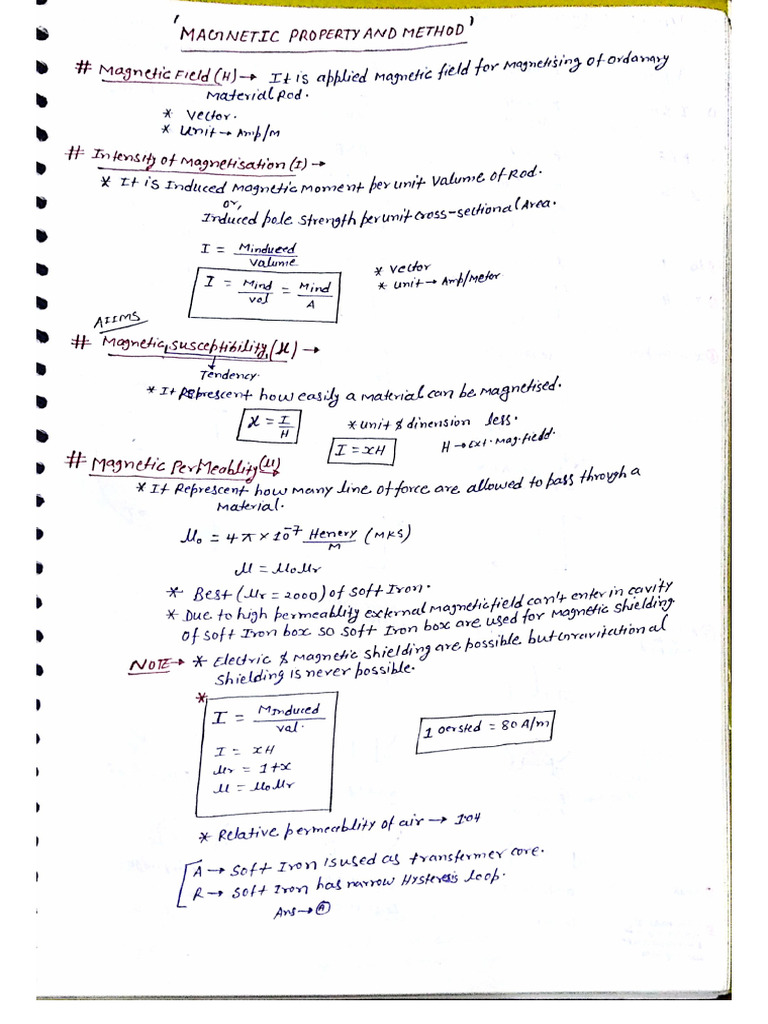 'MAGNETIC PROPERTY AND METHOD'
# Magnetic Field (H) → It is applied Magnetic field for Magnetising of ordanary
Material Rod.
* Vector.
* Unit → Amp/M
# Intensity of Magnetisation (I) →
* It is Induced Magnetic Moment per unit Valume of Rod.
or,
Induced pole strength per unit cross-sectional Area.
I = Minduced / Valume
I = Mind / vol = Mind / A
* Vector
* Unit → Amp/Metor
AIIMS
# Magnetic susceptibility (χ) →
Tendency.
* It Represcent how easily a material can be magnetised.
χ = I / H
* unit & dinension less.
I = xH
H → Ext. Mag. field.
# Magnetic Permeablity (μ) →
* It Represcent how many line of force are allowed to pass through a
Material.
μ₀ = 4π × 10⁻⁷ Henery / M (MKS)
μ = μ₀μr
* Best (μr = 2000) of soft Iron.
* Due to high permeablity external magnetic field can't enter in cavity
of soft Iron box so soft Iron box are used for Magnetic shielding
NOTE → * Electric & Magnetic shielding are possible but Gravitational
shielding is never possible.
* I = MInduced / val.
1 oersted = 80 A/m
I = xH
μr = 1+x
μ = μ₀μr
* Relative permeablity of air → 1.04
A → Soft Iron is used as transfermer core.
R → Soft Iron has narrow Hysteresis loop.
Ans → Ⓐ